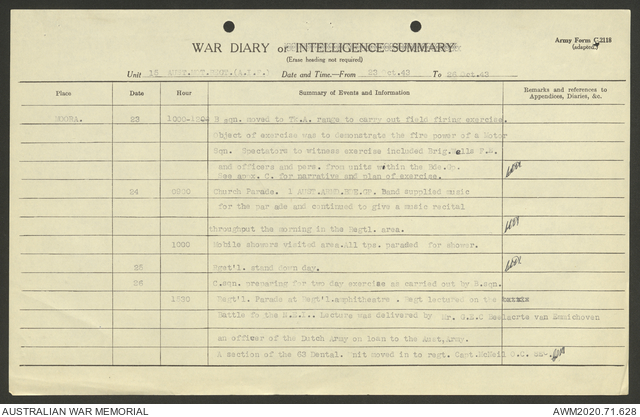 WAR DIARY or INTELLIGENCE SUMMARY
(Erase heading not required)
Army Form C.2118
(adapted)
Unit 15 AUST.MOT.REGT.(A.I.F.) Date and Time.—From 23 Oct.43 To 26 Oct.43
Place Date Hour Summary of Events and Information Remarks and references to
Appendices, Diaries, &c.
MOORA. 23 1000-1200 B sqn. moved to TK.A. range to carry out field firing exercise.
Object of exercise was to demonstrate the fire power of a Motor
Sqn. Spectators to witness exercise included Brig. Wells F.M.
and officers and pers. from units within the Bde.Gp.
See apex. C. for narrative and plan of exercise.
24 0900 Church Parade. 1 AUST.ARMD.BDE.GP. Band supplied music
for the par ade and continued to give a music recital
throughout the morning in the Regtl. area.
1000 Mobile showers visited area.All tps. paraded for shower.
25 Rget'l. stand down day.
26 C.sqn. preparing for two day exercise as carried out by B.sqn.
1830 Regt'l. Parade at Regt'l.amphitheatre . Regt lectured on the
Battle fo the N.E.I.. Lecture was delivered by Mr. G.E.C van Emmichoven
an officer of the Dutch Army on loan to the Aust,Army.
A section of the 60 Dental. Unit moved in to regt. Capt.McNeil O.C.
AUSTRALIAN WAR MEMORIAL
AWM2020.71.628